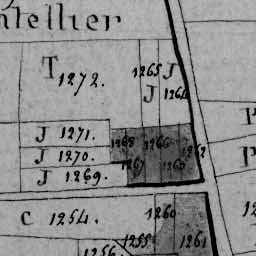 ntellier
T 1272.
1265 J
J 1264
J 1271.
J 1270.
J 1269.
1268 1266 1262
1267 1263
P
P
C 1254.
1260
1255
1261
1256.
12